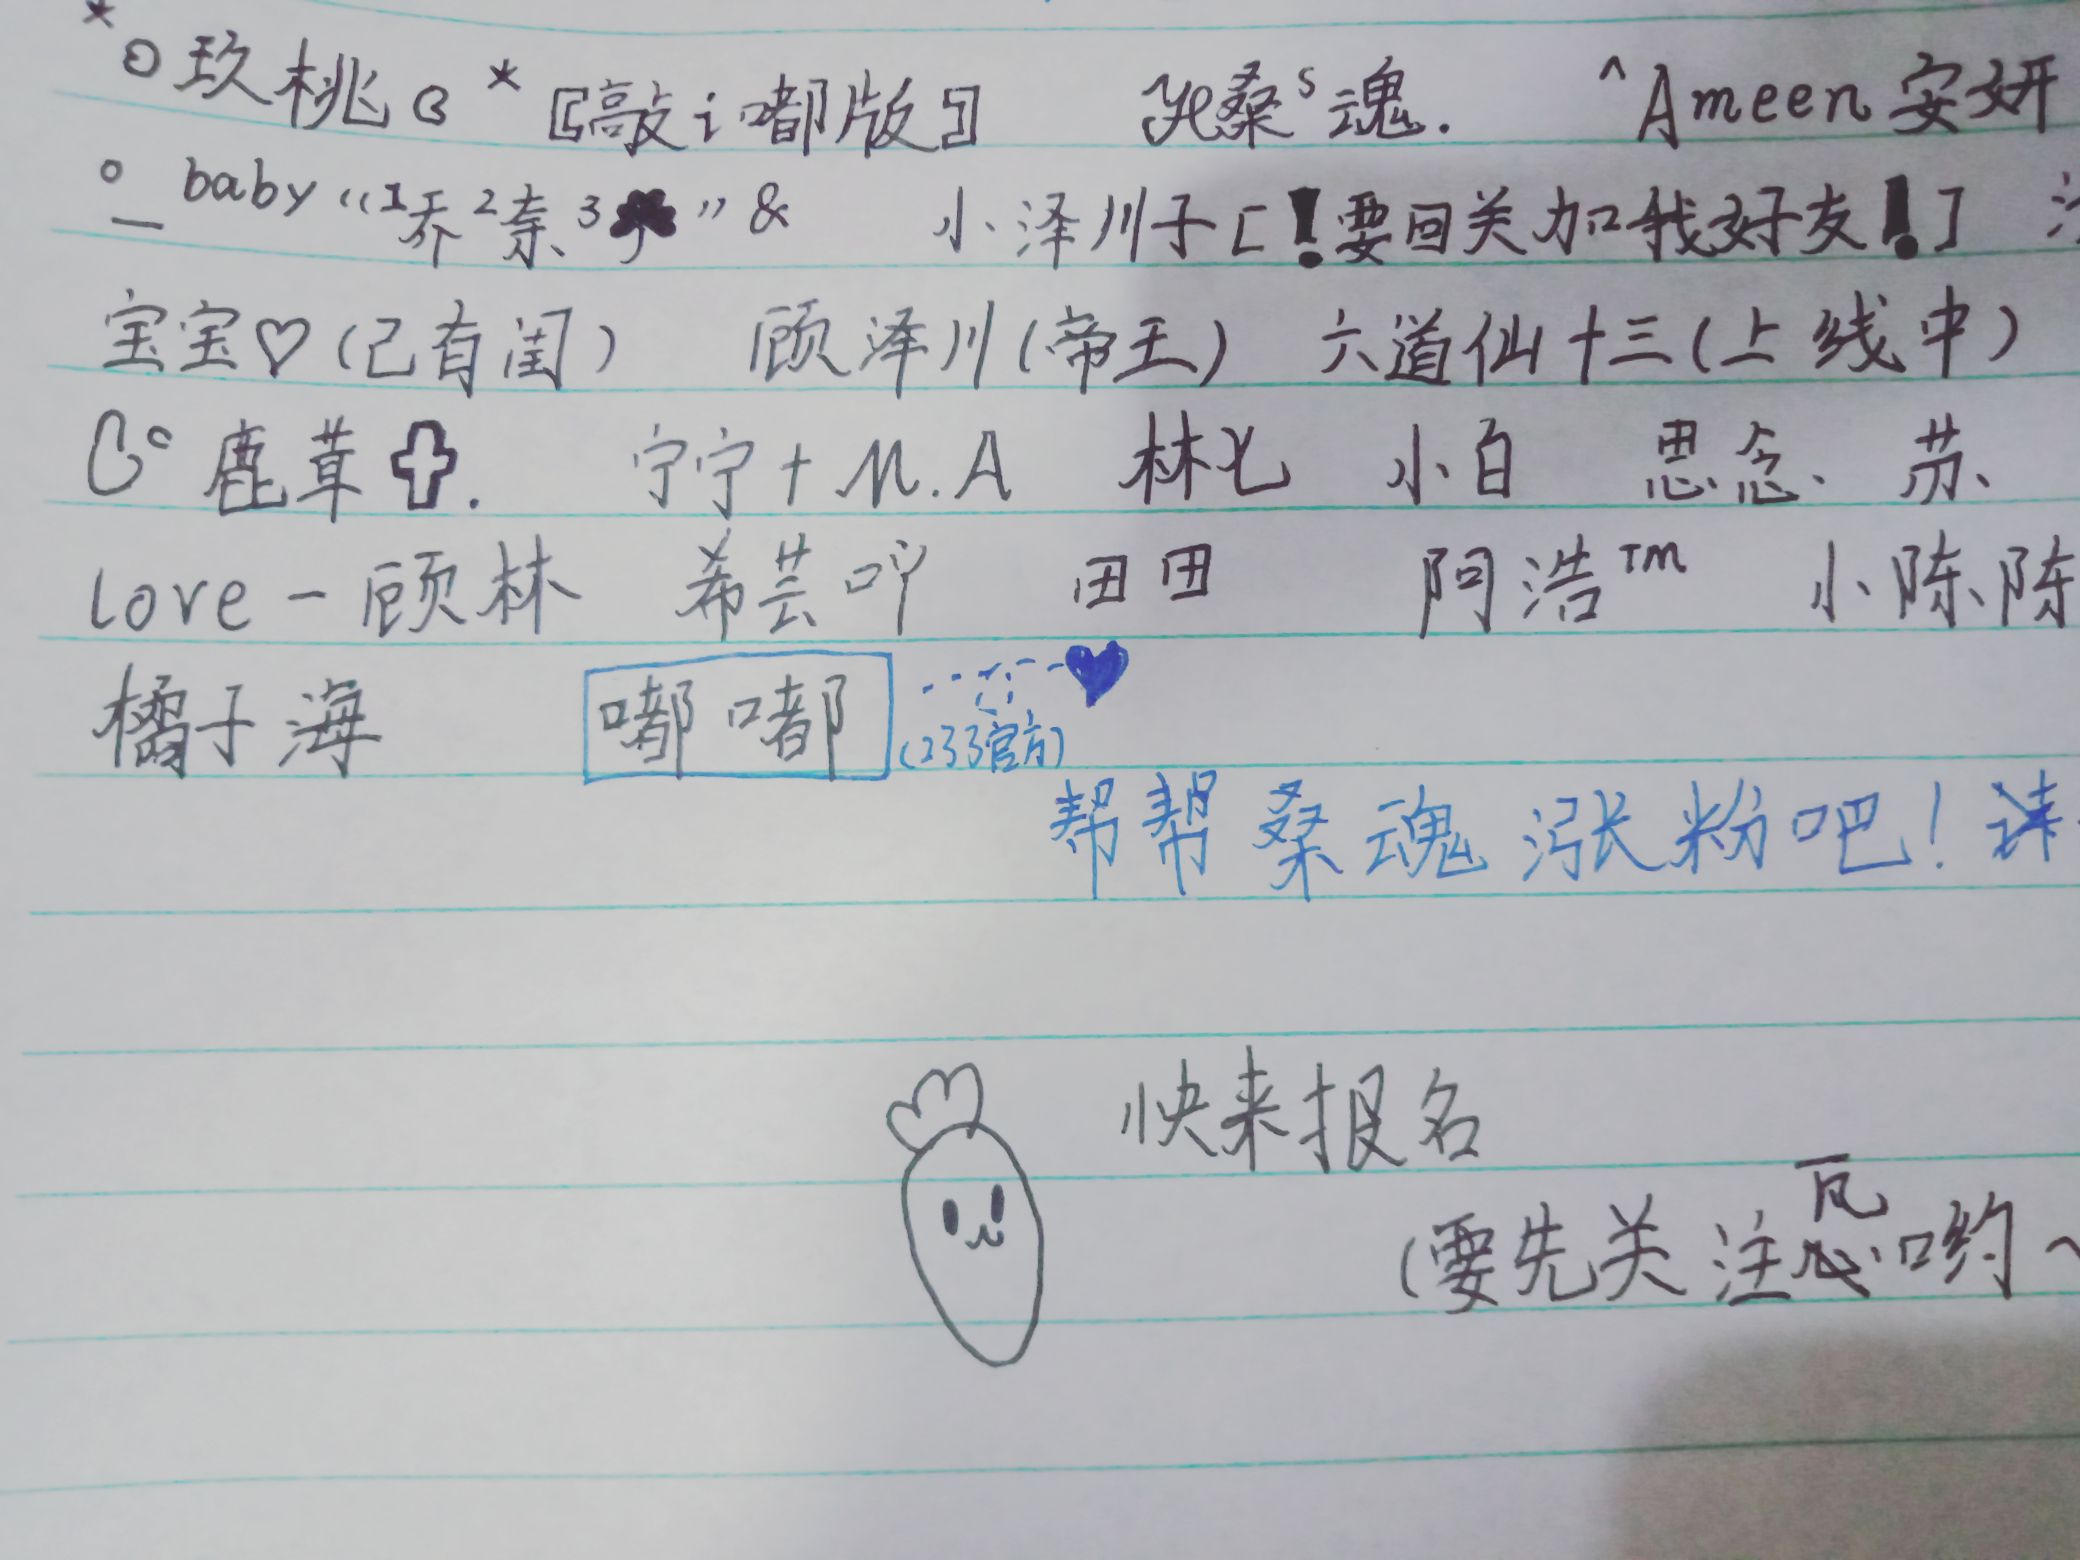 *ʚ玖桃ɞ*〖敲i嘟版〗 桑ˢ魂. ^Ameen安妍
°— baby “¹乔²奈³♣” & 小泽川子[!要回关加我好友!]
宝宝♡(已有闺) 顾泽川(帝王) 六道仙十三(上线中)
鹿茸✞. 宁宁+N.A 林七 小白 思念、 苏、
love-顾林 希芸吖 田田 阿浩™ 小陈陈
橘子海 嘟嘟 ♥
(233官方)
帮帮桑魂涨粉吧!
快来报名
(要先关注瓦哟~